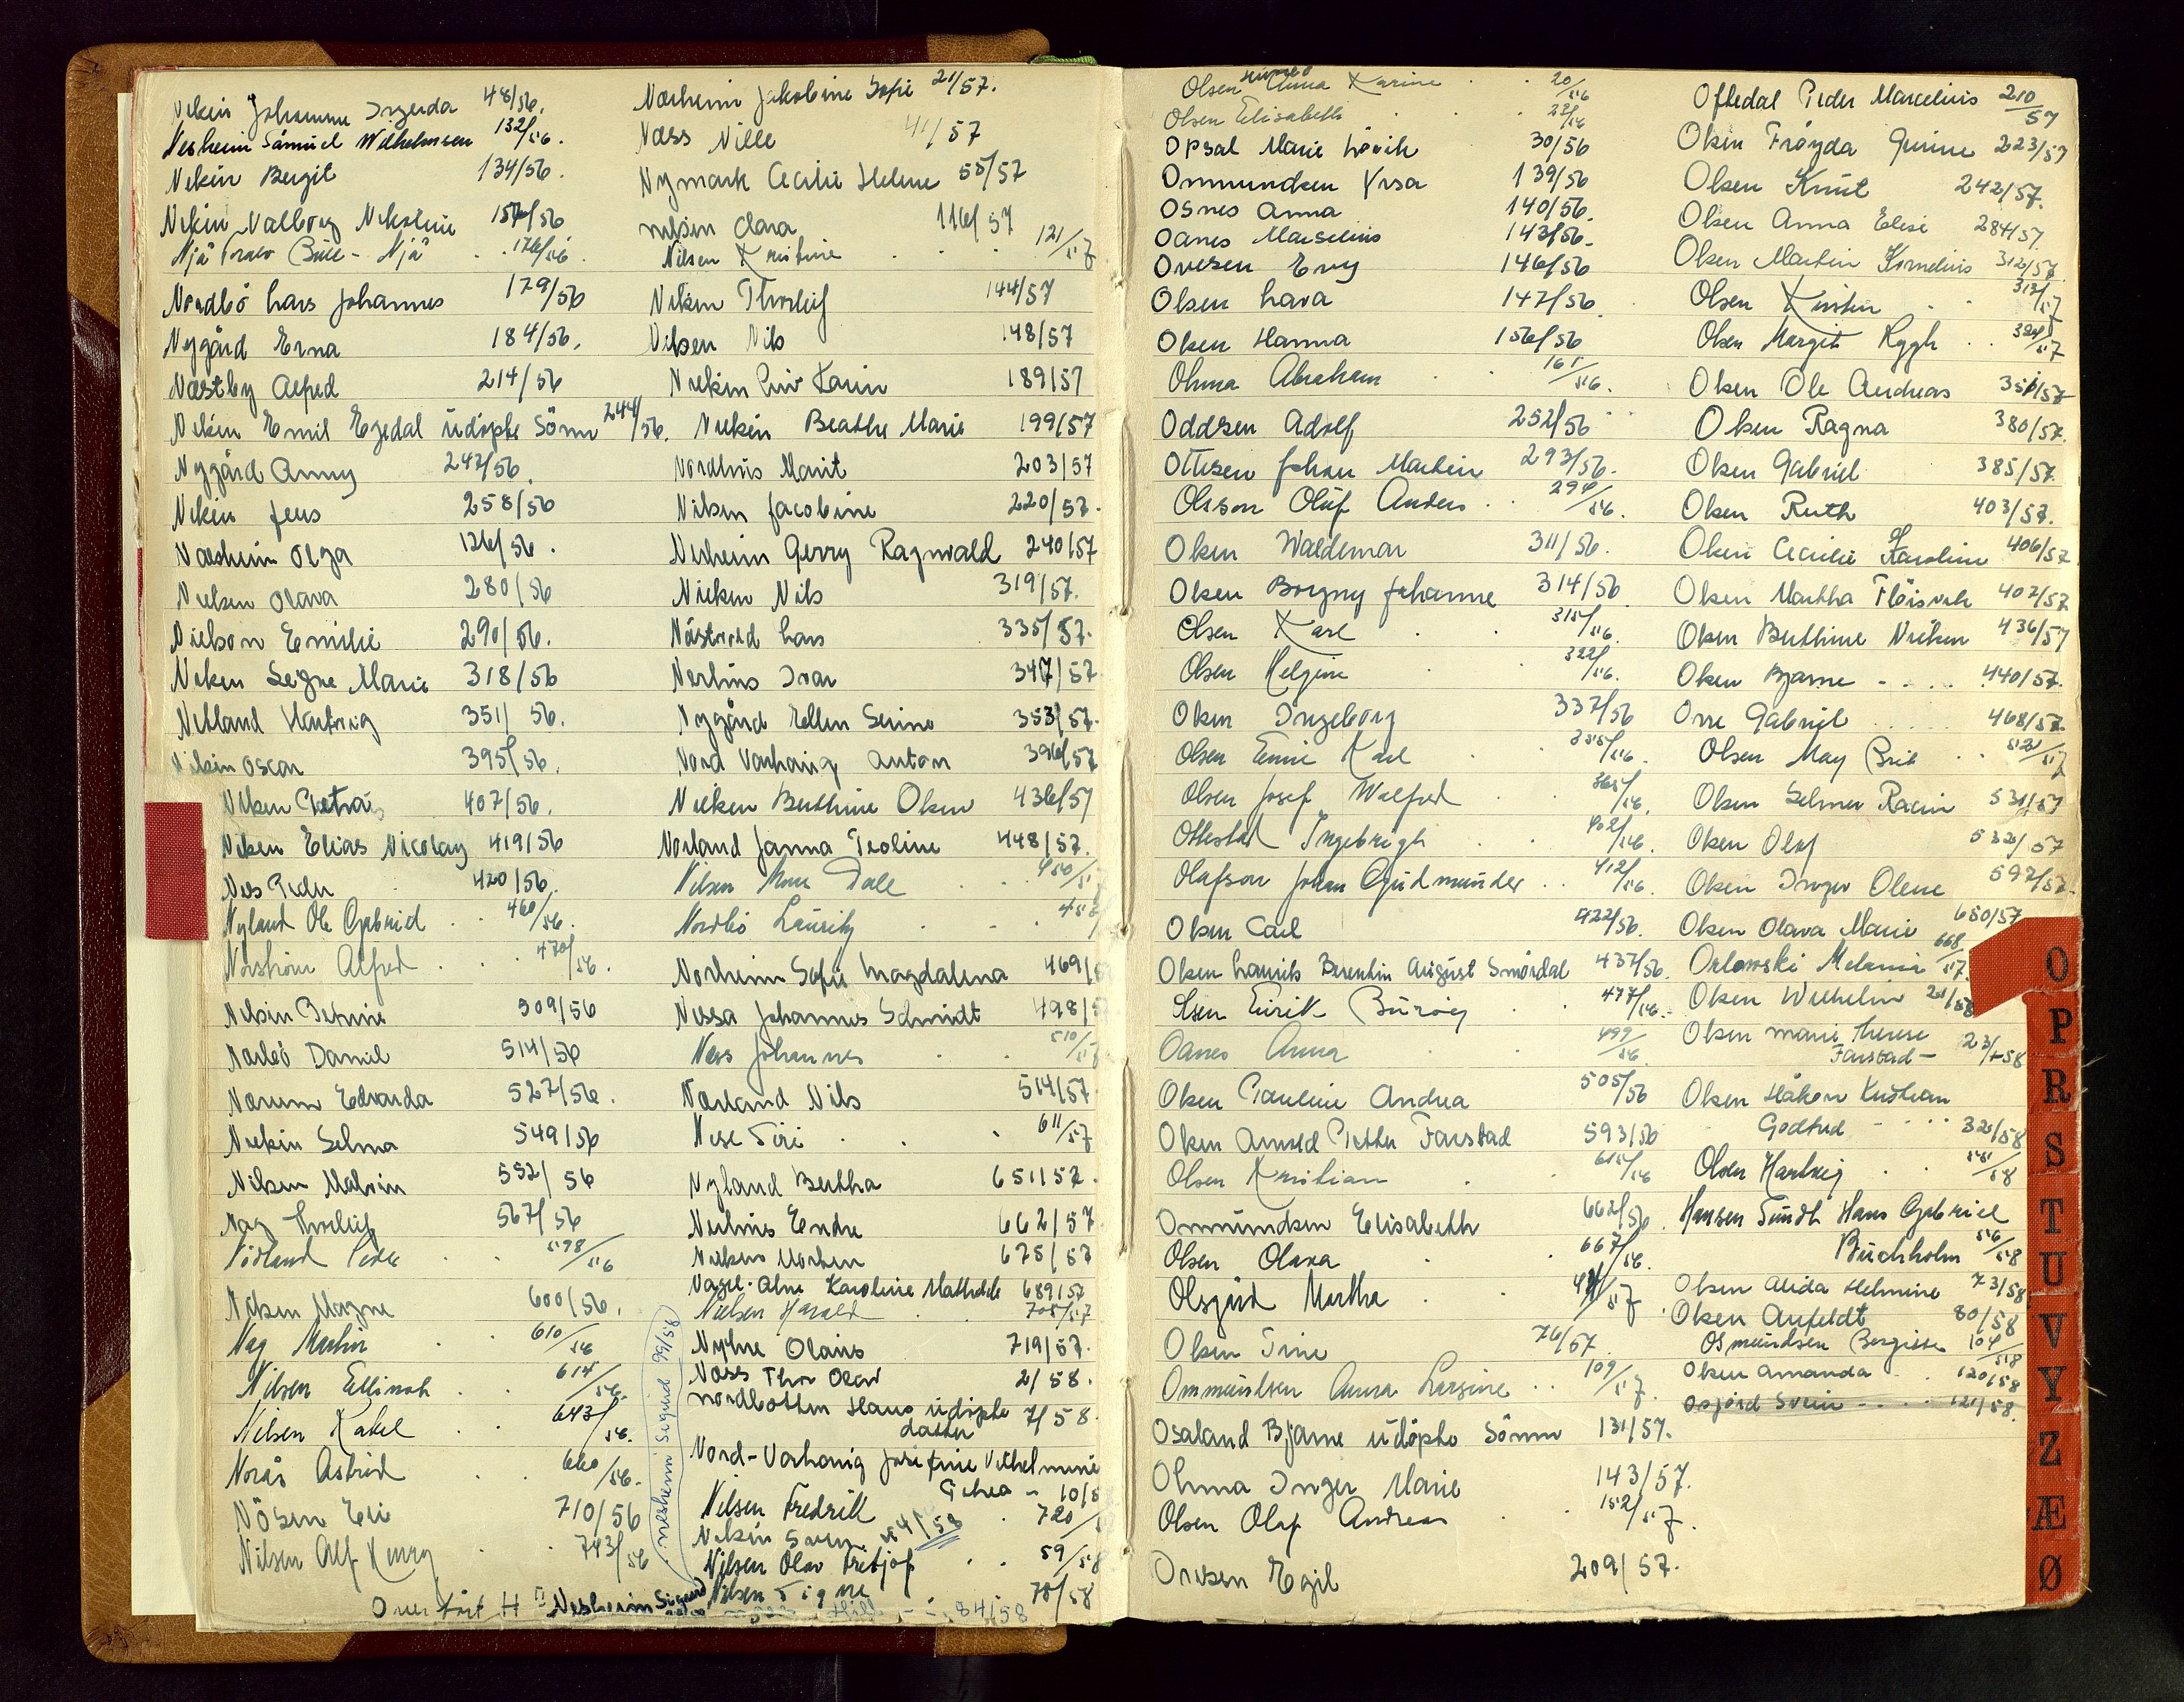 Nilsen Johanne Ingerda 48/56.
Nesheim Samuel Wilhelmsen 132/56.
Nilsen Bergit 134/56.
Nilsen Valborg Nikoline 154/56
Njå Toralv Bue - Njå 176/56
Nordbö Lars Johannes 179/56
Nygård Erna 184/56.
Næstby Alfred 214/56
Nilsen Emil Egedal udöpte Sönn 244/56.
Nygård Anny 247/56.
Nilsen Jens 258/56
Næsheim Olga 126/56.
Nielsen Olava 280/56
Nielson Emilie 290/56.
Nilsen Signe Marie 318/56
Netland Hartvig 351/56.
Nilsen Oscar 395/56.
Nilsen Petra 407/56.
Nilsen Elias Nicolay 419/56
Nes Peder 420/56.
Nyland Ole Gabriel 460/56.
Norström Alfred 470/56.
Nilsen Betuine 509/56
Nærbö Daniel 514/56
Nærum Edvarda 527/56.
Nielsen Selma 549/56
Nilsen Malvin 552/56
Nag Thorleif 567/56
Nödland Peder 598/56
Nilsen Magne 600/56.
Nag Martin 610/56
Nilsen Ellinah 614/56.
Nilsen Rakel 643/56.
Norås Astrid 660/56.
Nösen Eli 710/56
Nilsen Alf Henry 743/56
Overfört H II Nesheim Sigurd
Nærheim Jakobine Sofie 21/57.
Næss Nille 41/57
Nymark Cecilie Helene 55/57
Nilsen Clara 116/57
Nilsen Kristine 121/57
Nilsen Thorleif 144/57
Nilsen Nils 148/57
Nielsen Liv Karin 189/57
Nielsen Beathe Marie 199/57
Nordhus Marit 203/57
Nilsen Jacobine 220/57.
Nesheim Gerry Ragnvald 240/57
Nielsen Nils 319/57.
Nåstvold Lars 335/57.
Nerhus Ivar 347/57
Nygård Ellen Serine 353/57.
Nord Varhaug Anton 396/57
Nielsen Berthine Olsen 436/57
Norland Janna Teoline 448/57.
Nilsen Mone Dale 450/57
Nordbö Lauritz
Norheim Sofie Magdalena 469/
Nessa Johannes Schmidt 498/
Ness Johannes 510/
Nærland Nils 514/57.
Nese Siri 611/57
Nyland Bertha 651/57.
Nerhus Endre 662/57
Nielsen Morten 675/57
Nagel-Alne Karoline Mathilde 689/57
Nielsen Harald 705/57
Nyhre Olaus 719/57.
Næss Thor Olav 2/58.
Nordbotten Hans udöpte datter 7/58.
Nord-Varhaug Josefine Vilhelmine
Gihea - 10/5
Nilsen Fredrik 720/
Nilsen Svein 54/58
Nilsen Olav Fritjof 59/58
Nilsen Signe 78/58
84/58
Nesheim Sigurd 99/58
Olsen Anna Karine 20/56
Olsen Elisabeth 22/56
Opsal Marie Lövik 30/56
Ommundsen Vrsa 139/56
Osnes Anna 140/56.
Oanes Marselius 143/56.
Ovesen Evy 146/56
Olsen Lava 147/56.
Olsen Hanna 156/56
Ohma Abraham 161/56.
Oddsen Adolf 252/56
Ottesen Johan Martin 293/56.
Olsson Oluf Anders 294/56.
Olsen Waldemar 311/56.
Olsen Borgny Johanne 314/56
Olsen Karl 315/56.
Olsen Helgine 322/56.
Olsen Ingeborg 337/56
Olsen Einii Karl 355/56.
Olsen Josef Walfred 365/56.
Ottestad Ingebrigt 402/56.
Olafson Johan Gudmunder 412/56.
Olsen Carl 422/56.
Olsen Laurits Berentin August Smördal 437/56.
Olsen Eirik Buröy 477/56.
Oanes Anna 499/56
Olsen Pauline Andrea 505/56
Olsen Arnold Petter Farstad 593/56
Olsen Kristian 615/56
Omundsen Elisabeth 662/56
Olsen Olava 667/56.
Olsgård Martha 41/57
Olsen Trine 76/57.
Ommundsen Anna Lursine 109/57.
Osaland Bjarne udöpte Sönn 131/57.
Ohma Inger Marie 143/57.
Olsen Olaf Andreas 152/57.
Ovesen Egil 209/57.
Oftedal Peder Marcelius 210/57
Olsen Fröyda Gurine 223/57
Olsen Knut 242/57.
Olsen Anna Elise 284/57.
Olsen Martin Kornelius 312/57
Olsen Kirsten 313/57
Olsen Margit Hygh 324/57
Olsen Ole Andreas 351/57
Olsen Ragna 380/57.
Olsen Gabriel 385/57.
Olsen Ruth 403/57.
Olsen Cecilie Karoline 406/57
Olsen Martha Flöisvik 407/57
Olsen Berthine Nielsen 436/57
Olsen Bjarne - . . . . 440/57.
Orre Gabriel 468/57.
Olsen May Brit 521/57
Olsen Selmer Racin 531/57
Olsen Olaf 532/57
Olsen Inger Olene 592/57.
Olsen Olava Marie 650/57
Orlowski Melania 668/57.
Olsen Wilhelm 21/58
Olsen Marie Therese
Farstad - 23/58
Olsen Håkon Kristian
Godtfred - . . . 32/58
Olsen Hartvig 51/58
Hansen Sundt Hans Gabriel
Buchholm 56/58
Olsen Alida Helmine 73/58
Olsen Anfeldt 80/58
Osmundsen Bergitte 104/58
Olsen Amanda 120/58
Osjord Svein - . . . 121/58.
O
P
R
S
T
U
V
Y
Z
Æ
Ø